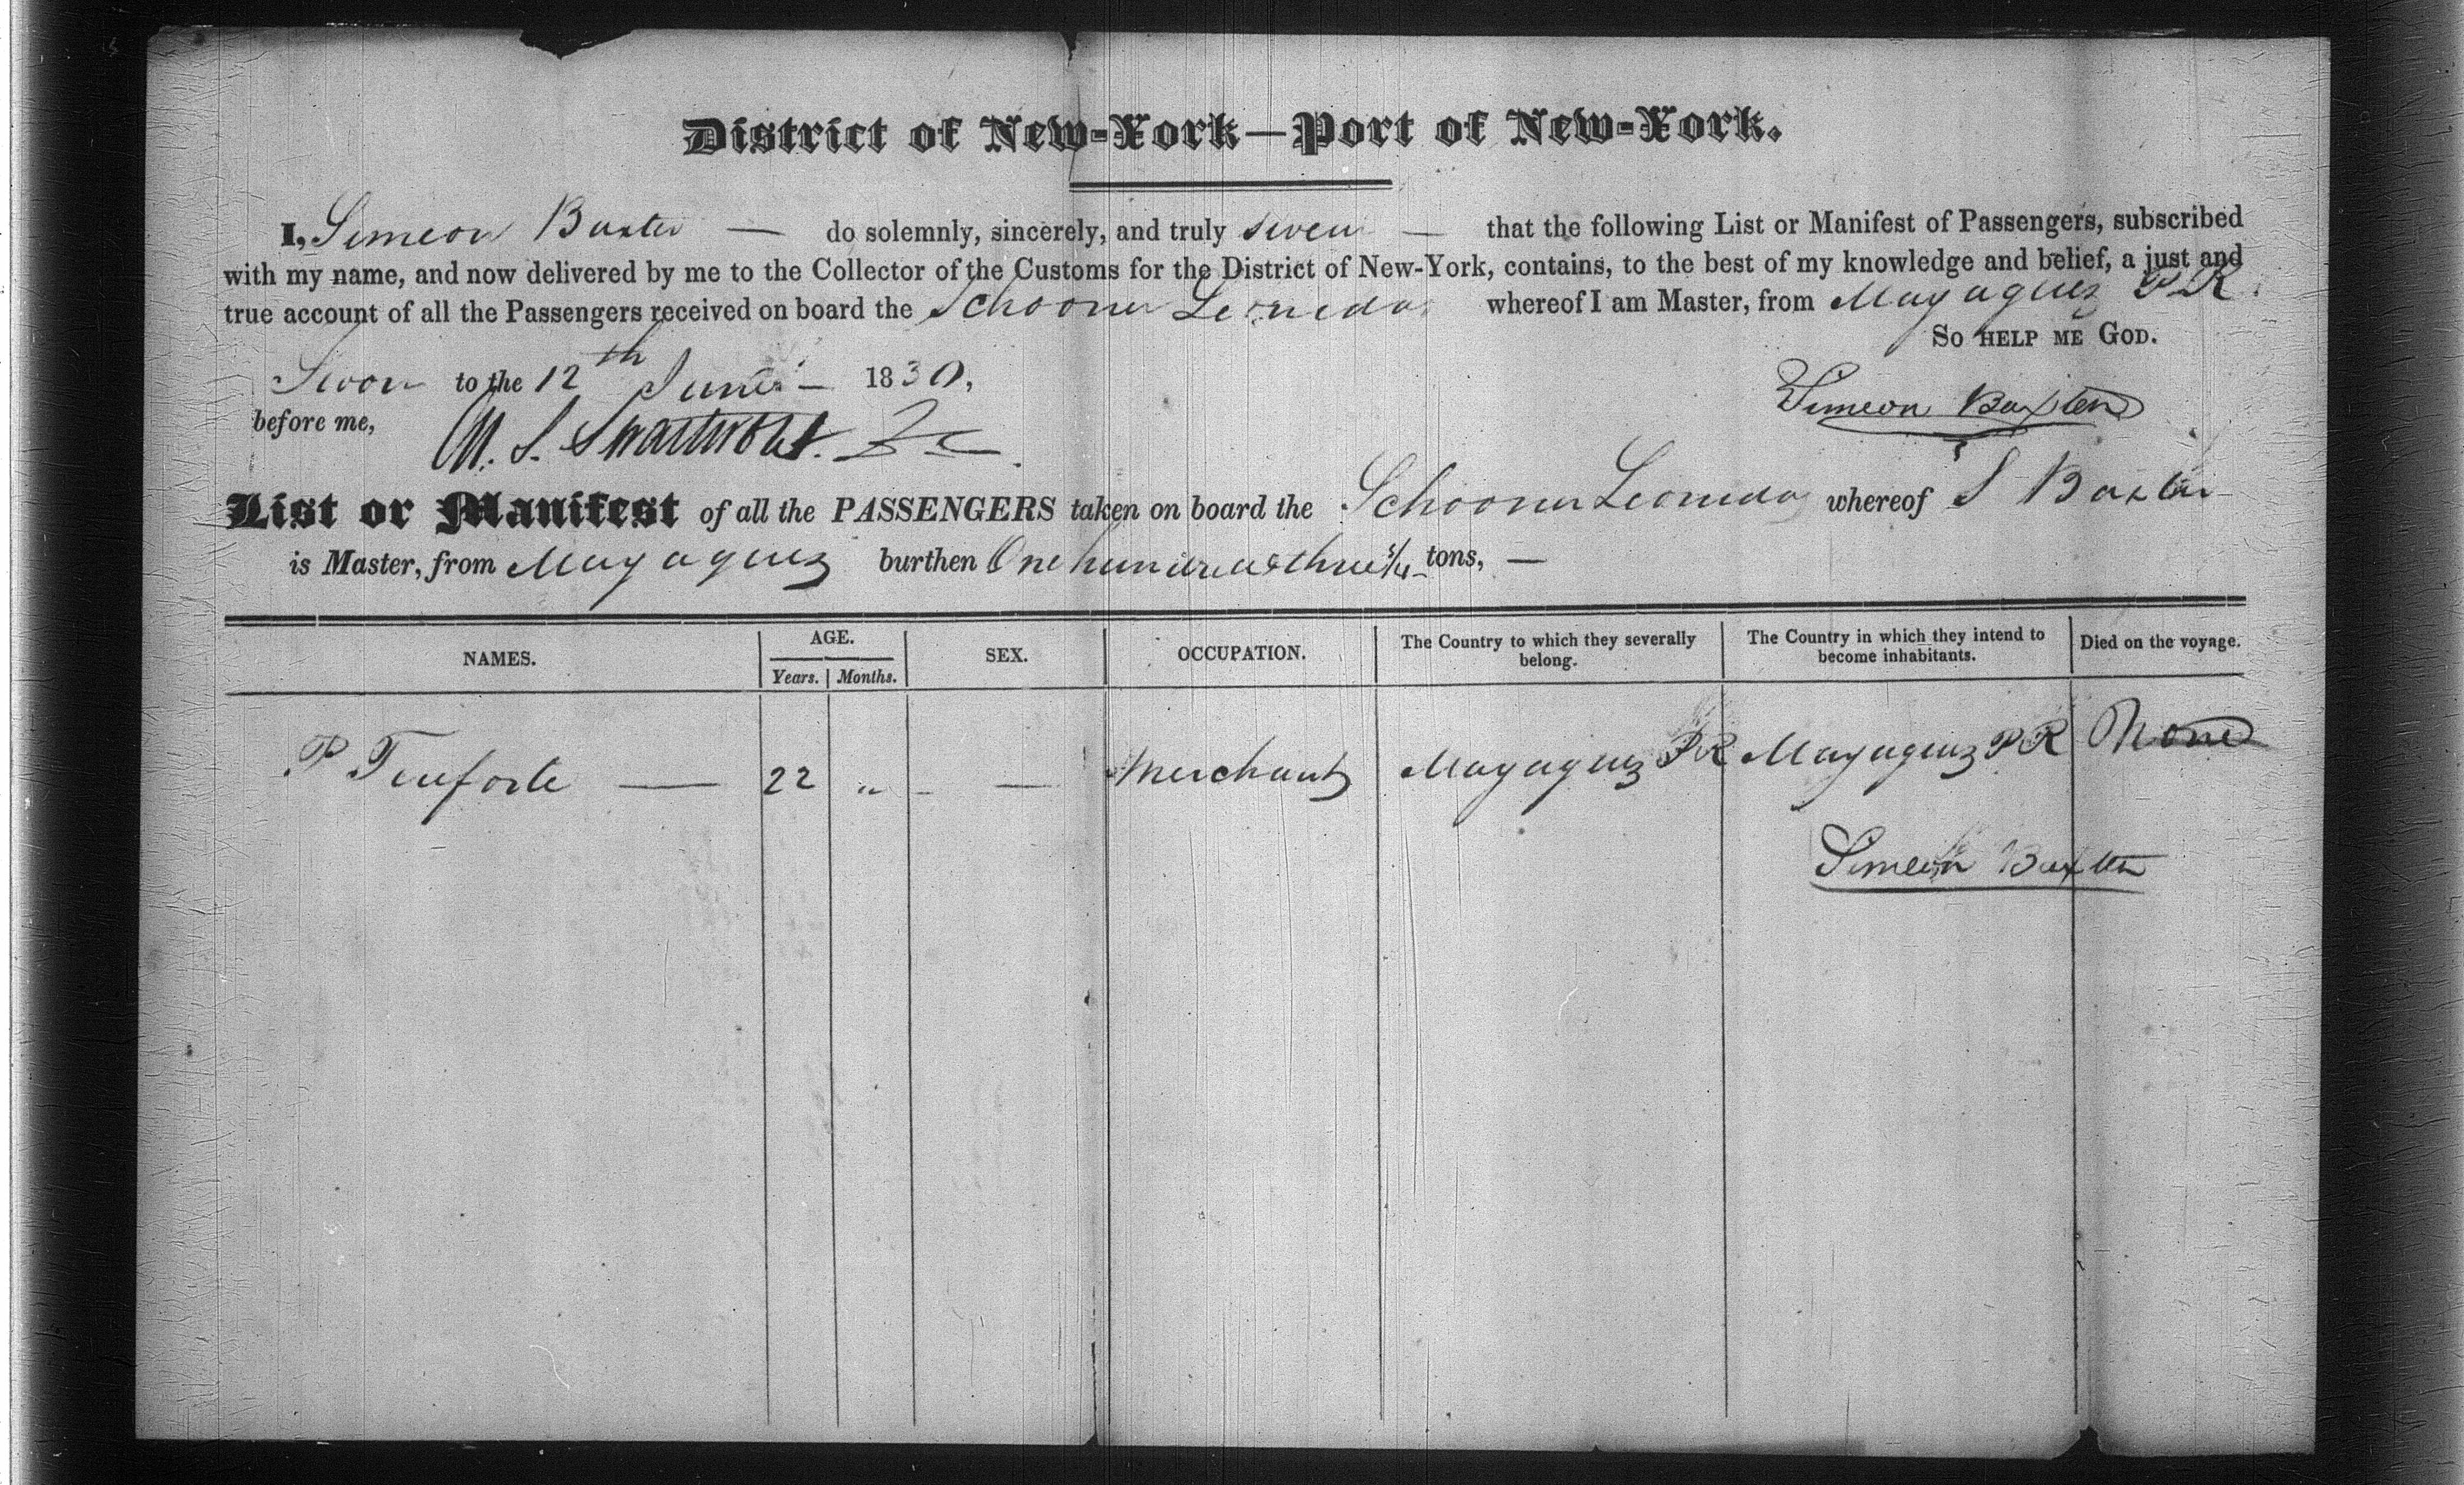 District of New-York—Port of New-York.
I, Simeon Baxter — do solemnly, sincerely, and truly swear — that the following List or Manifest of Passengers, subscribed
with my name, and now delivered by me to the Collector of the Customs for the District of New-York, contains, to the best of my knowledge and belief, a just and
true account of all the Passengers received on board the Schooner Leonidas whereof I am Master, from Mayaguez PR.
So HELP ME GOD.
Sworn to the 12th June — 1830,
before me,
Simeon Baxter
M. S. Swartwout.
List or Manifest of all the PASSENGERS taken on board the Schooner Leonidas whereof S Baxter
is Master, from Mayaguez burthen One hundred & three tons, —
NAMES. AGE. SEX. OCCUPATION. The Country to which they severally belong. The Country in which they intend to become inhabitants. Died on the voyage.
Years. Months.
P Teuforte — 22 " - — Merchant Mayaguez PR Mayaguez PR None
Simeon Baxter